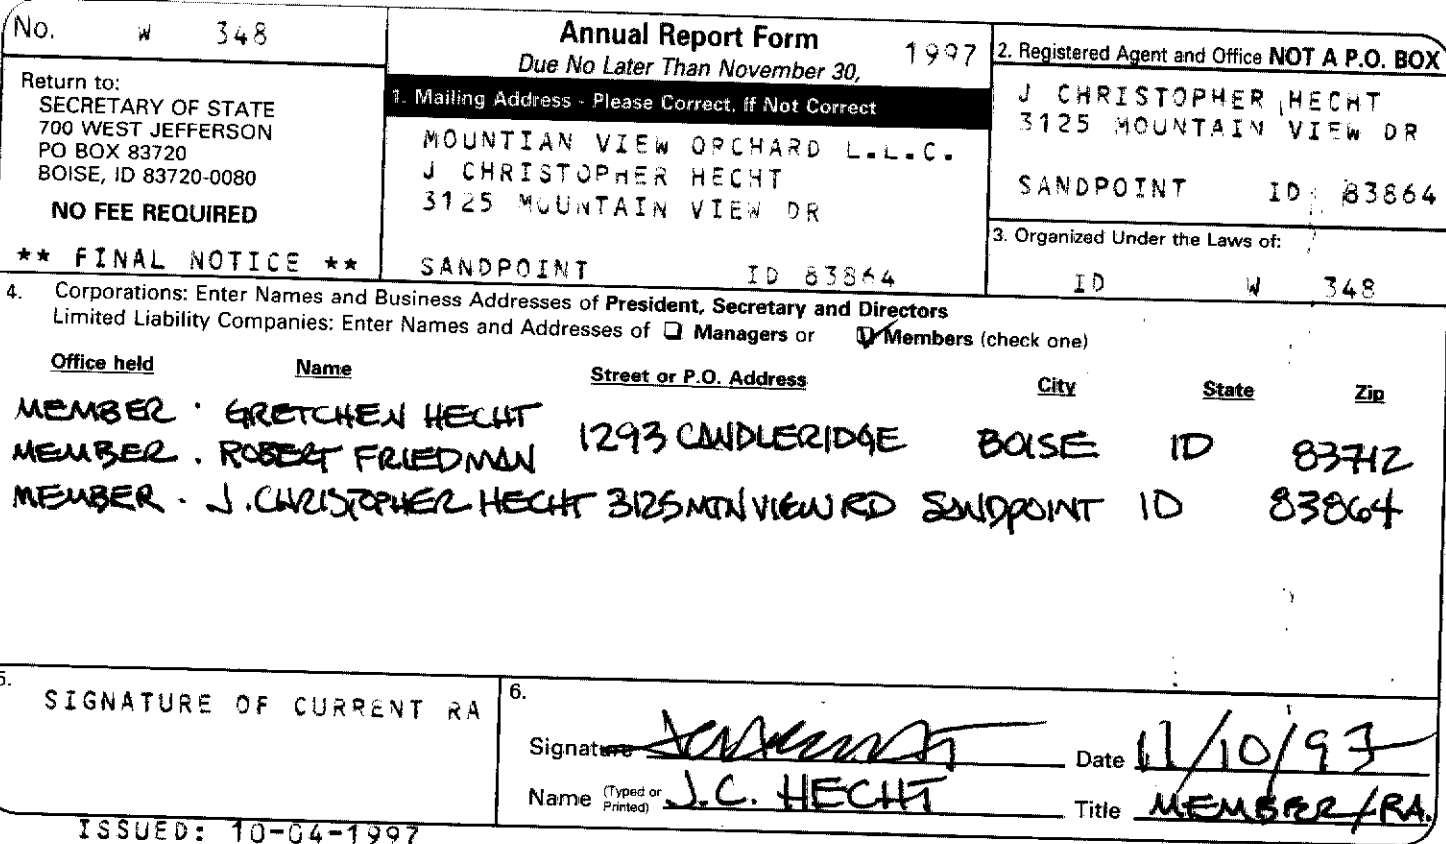 No. W 348
Return to:
SECRETARY OF STATE
700 WEST JEFFERSON
PO BOX 83720
BOISE, ID 83720-0080
NO FEE REQUIRED
** FINAL NOTICE **
Annual Report Form
Due No Later Than November 30, 1997
1. Mailing Address - Please Correct, If Not Correct
MOUNTIAN VIEW ORCHARD L.L.C.
J CHRISTOPHER HECHT
3125 MOUNTAIN VIEW DR
SANDPOINT ID 83864
2. Registered Agent and Office NOT A P.O. BOX
J CHRISTOPHER HECHT
3125 MOUNTAIN VIEW DR
SANDPOINT ID 83864
3. Organized Under the Laws of:
ID W 348
4. Corporations: Enter Names and Business Addresses of President, Secretary and Directors
Limited Liability Companies: Enter Names and Addresses of ❑ Managers or ☑ Members (check one)
Office held Name Street or P.O. Address City State Zip
MEMBER · GRETCHEN HECHT
MEMBER . ROBERT FRIEDMAN 1293 CANDLERIDGE BOISE ID 83712
MEMBER · J. CHRISTOPHER HECHT 3125 MTN VIEW RD SANDPOINT ID 83864
5.
SIGNATURE OF CURRENT RA
6.
Signature Date 11/10/97
Name (Typed or Printed) J.C. HECHT Title MEMBER/RA.
ISSUED: 10-04-1997